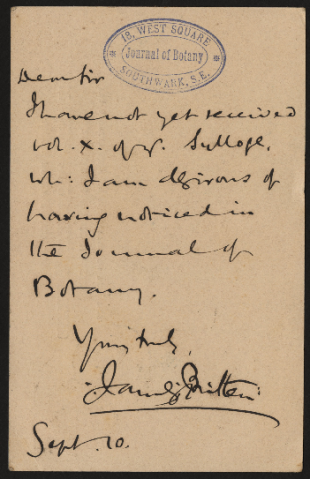 18, WEST SQUARE
Journal of Botany
SOUTHWARK, S.E.
Dear Sir
I have not yet received
vol. X. of yr. Sylloge,
wh: I am desirous of
having noticed in
the Journal of
Botany.
Yours truly,
James Britten
Sept. 10.